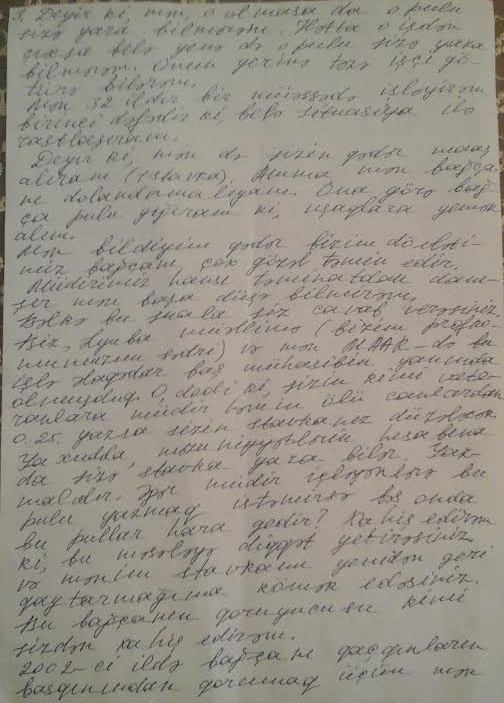 3. Deyir ki, mən, o olmasa da o pulu
sizə yaza bilmərəm. Hətta o işdən
çıxsa belə yenə də o pulu sizə yaza
bilmərəm. Onun yerinə təzə işçi gö-
türə bilərəm.
Mən 32 ildir bir müəssədə işləyirəm
birinci dəfədir ki, belə situasiya ilə
rastlaşıram.
Deyir ki, mən də sizin qədər maaş
alıram (1 stavka). Amma mən bağça-
nı dolandırmalıyam. Ona görə bağ-
ça pulu yığıram ki, uşaqlara yemək
alım.
Mən bildiyim qədər bizim dövləti-
miz bağçanı çox gözəl təmin edir.
Müdirimiz hansı təminatdan danı-
şır mən başa düşə bilmirəm.
Bəlkə bu suala siz cavab verəsiniz.
Biz, Lyuba müəllimə (bizim profko-
mumuzun sədri) və mən MAAR-də bu
işlə əlaqədar baş mühasibin yanında
olmuşduq. O, dedi ki, sizin kimi vete-
ranlara müdir həmin ölü canlardan
0.25. yazsa sizin stavkanız düzələcək
Yaxudda, məzuniyyətlərin hesabına
da sizə stavka yaza bilər. Yaz-
malıdır. Əgər müdir işləyənlərə bu
pulu yazmaq istəmirsə bəs onda
bu pullar hara gedir? Xahiş edirəm
ki, bu məsələyə diqqət yetirəsiniz
və mənim stavkamı yenidən geri
qaytarmağıma kömək edəsiniz.
Bu bağçanın qoruyucusu kimi
sizdən xahiş edirəm.
2002-ci ildə bağçanı qaçqınların
basqınından qorumaq üçün mən